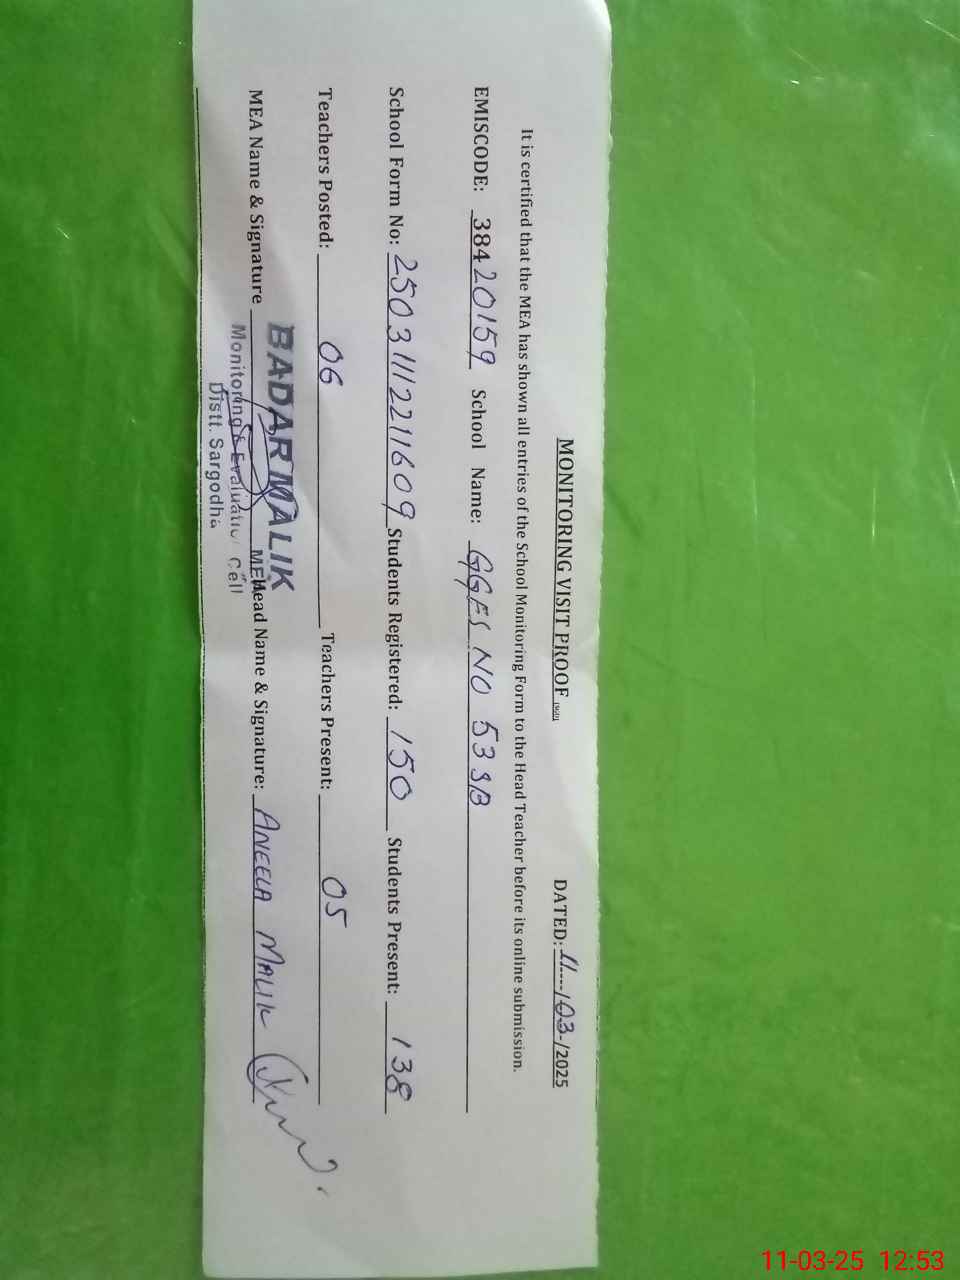 MONITORING VISIT PROOF DATED: 11----/03-/2025
It is certified that the MEA has shown all entries of the School Monitoring Form to the Head Teacher before its online submission.
EMISCODE: 38420159 School Name: GGES NO 53 SB
School Form No: 25031112211609 Students Registered: 150 Students Present: 138
Teachers Posted: 06 Teachers Present: 05
MEA Name & Signature BADAR MALIK Head Name & Signature: ANEELA MALIK
MEA
Monitoring & Evaluation Cell
Distt. Sargodha
11-03-25 12:53